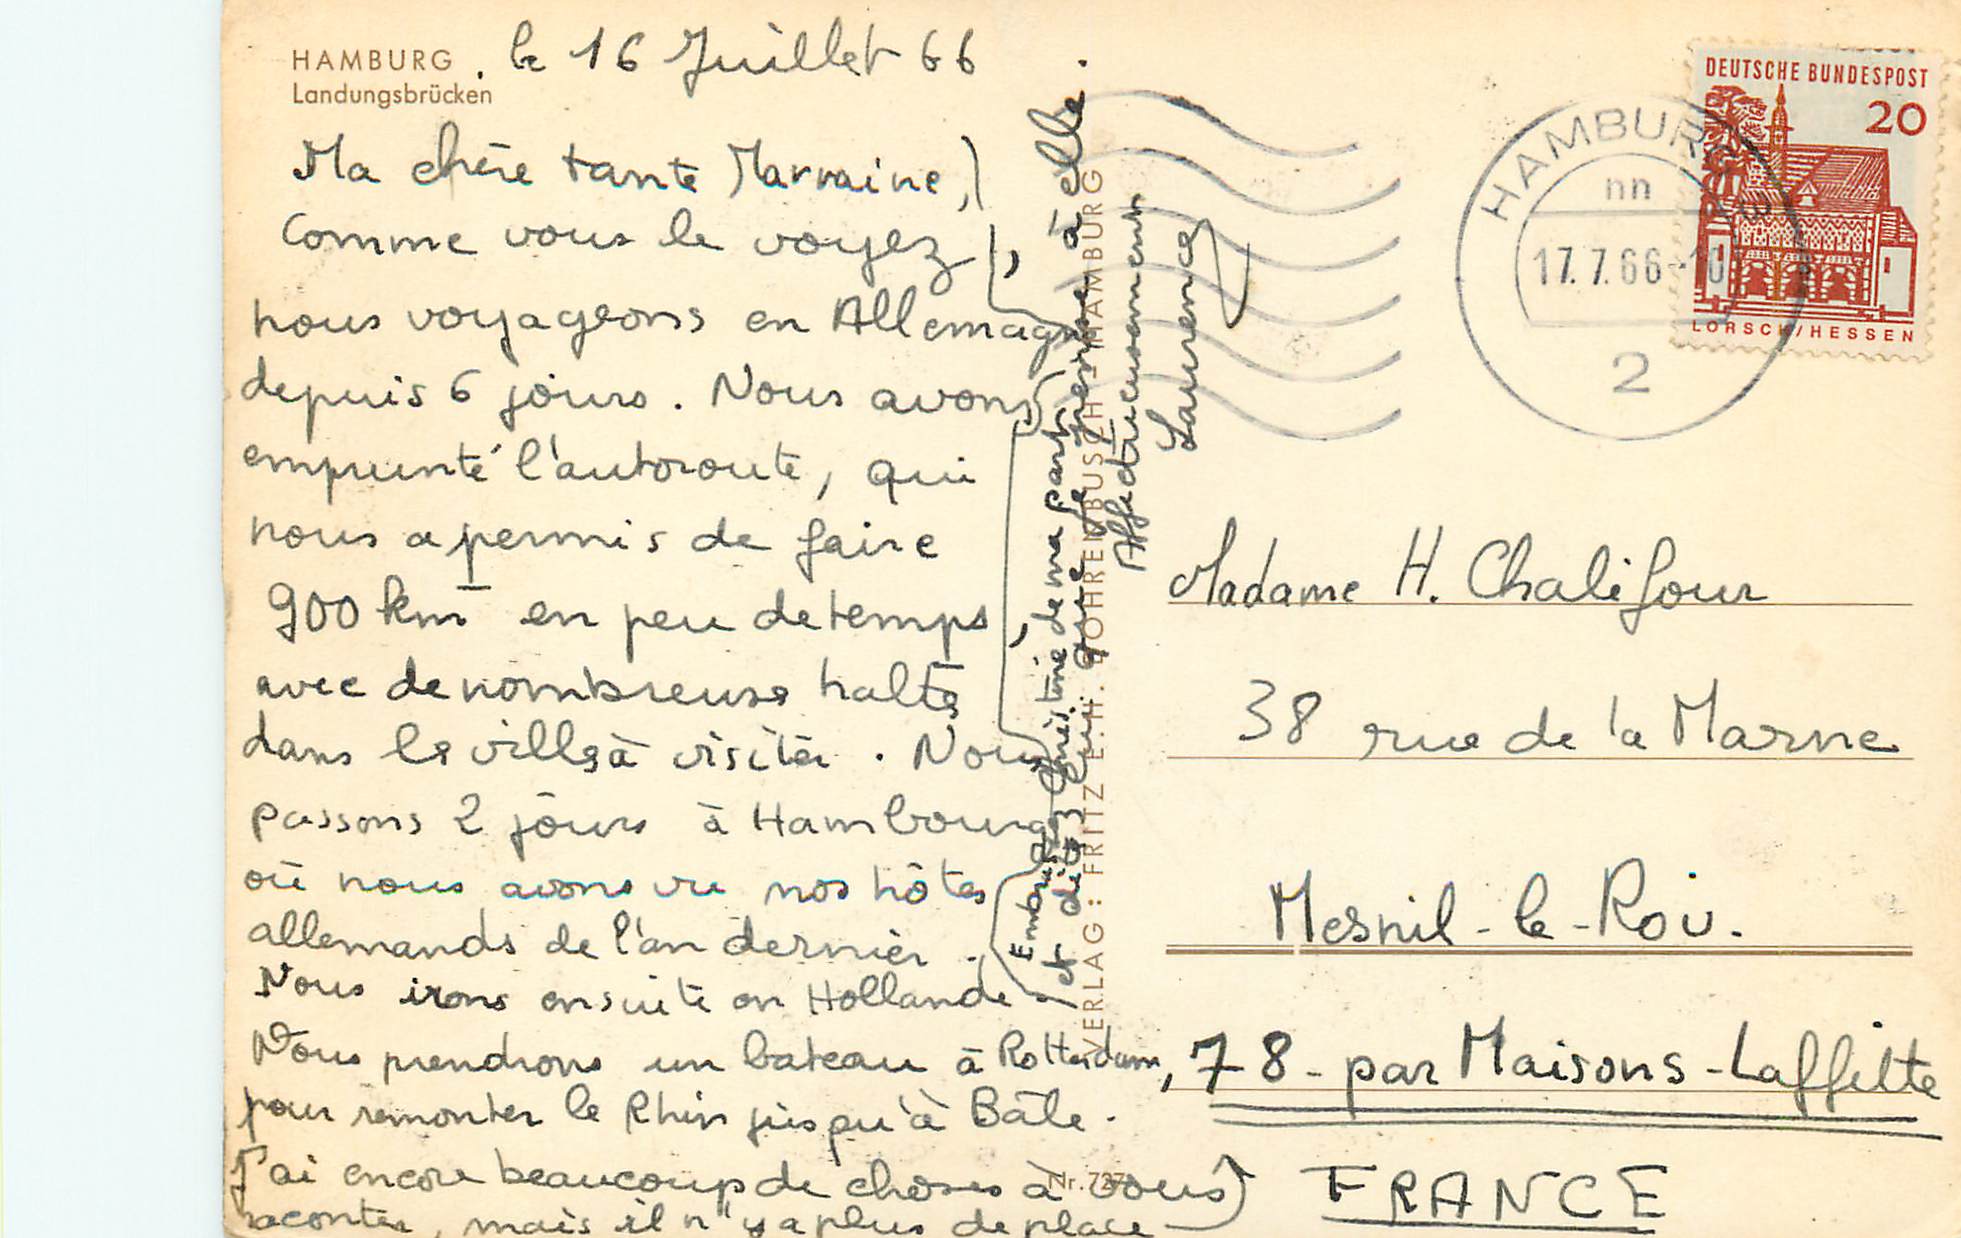 HAMBURG
Landungsbrücken
. le 16 Juillet 66
Ma chère tante Marraine,
Comme vous le voyez,
nous voyageons en Allemagne
depuis 6 jours. Nous avons
emprunté l'autoroute, qui
nous a permis de faire
900 km en peu de temps,
avec de nombreuses haltes
dans les villes à visiter. Nous
passons 2 jours à Hambourg
où nous avons vu nos hôtes
allemands de l'an dernier.
Nous irons ensuite en Hollande.
Nous prendrons un bateau à Rotterdam,
pour remonter le Rhin jusqu'à Bâle.
J'ai encore beaucoup de choses à vous
raconter, mais il n'y a plus de place
Embrassez Christine de ma part
et dites lui que je pense à elle.
Affectueusement
Laurence
VERLAG: FRITZ E.H. GOHRENBUSCH · HAMBURG
Nr. 727
DEUTSCHE BUNDESPOST
20
LORSCH/HESSEN
HAMBURG
nn
17.7.66-10
2
Madame H. Chalifour
38 rue de la Marne
Mesnil-le-Roi.
78-par Maisons-Laffitte
FRANCE